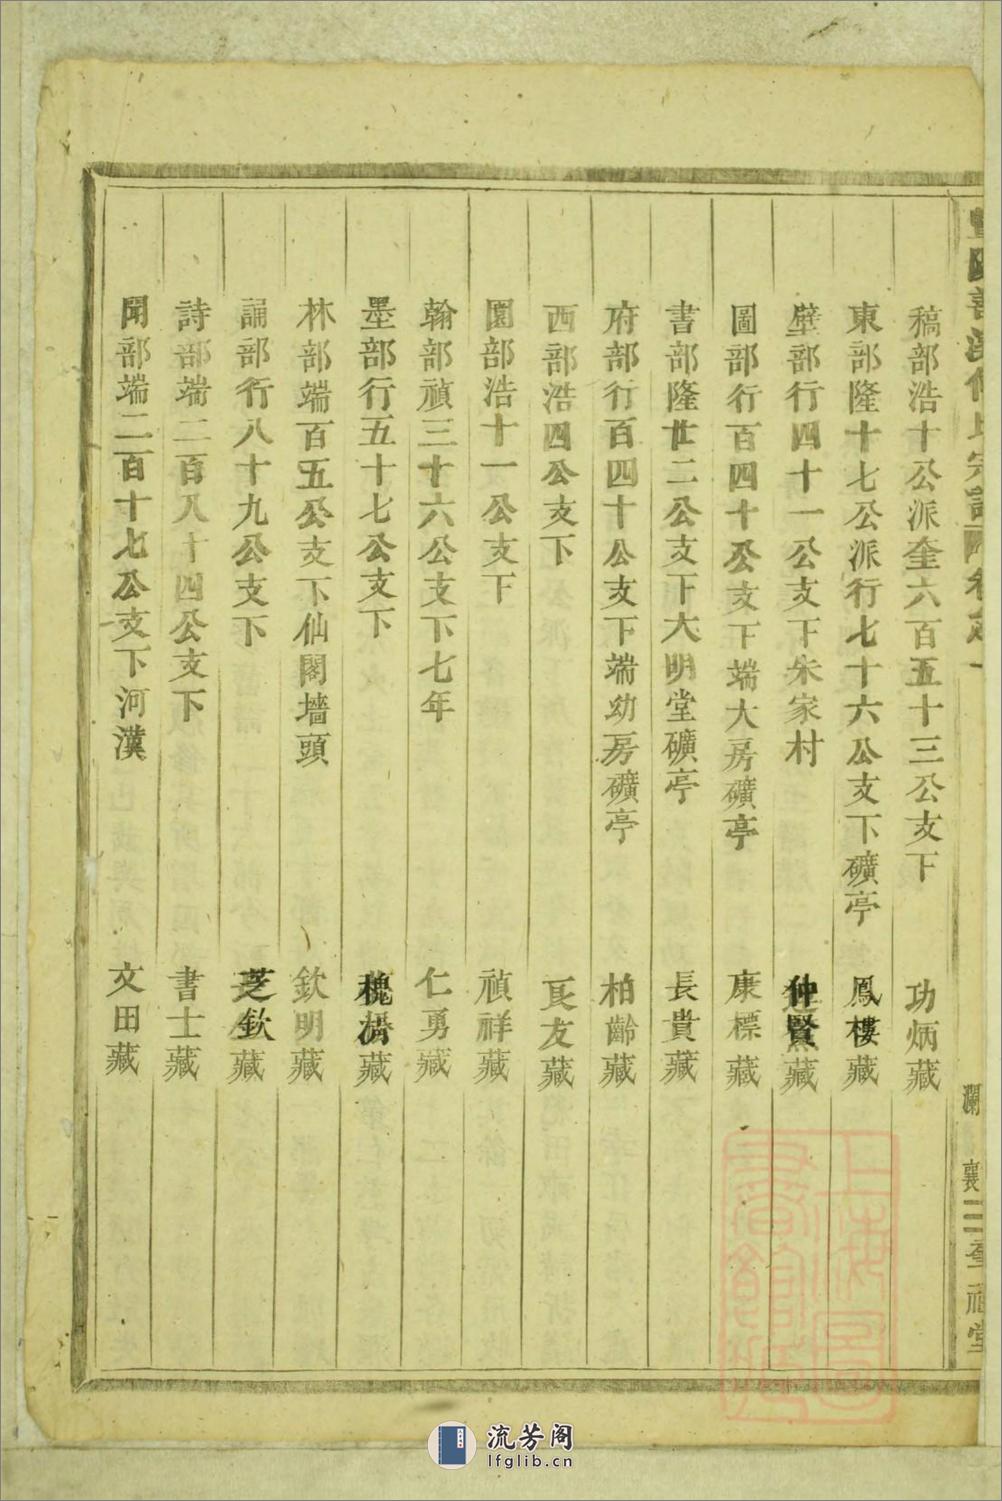 稿部浩十公派奎六百五十三公支下 功炳藏
東部隆十七公派行七十六公支下礦亭 鳳樓藏
壁部行四十一公支下朱家村 仲賢藏
圖部行百四十公支下端大房礦亭 康標藏
書部隆廿二公支下大明堂礦亭 長貴藏
府部行百四十公支下端幼房礦亭 柏齡藏
西部浩四公支下 友藏
園部浩十一公支下 禎祥藏
翰部禎三十六公支下七年 仁勇藏
墨部行五十七公支下 槐藏
林部端百五公支下仙閣墻頭 欽明藏
誦部行八十九公支下 芝欽藏
詩部端二百八十四公支下 書士藏
聞部端二百十七公支下河漢 文田藏
宗譜 卷之一
瀾 襄 堂
上海圖書館藏
流芳阁
lfglib.cn